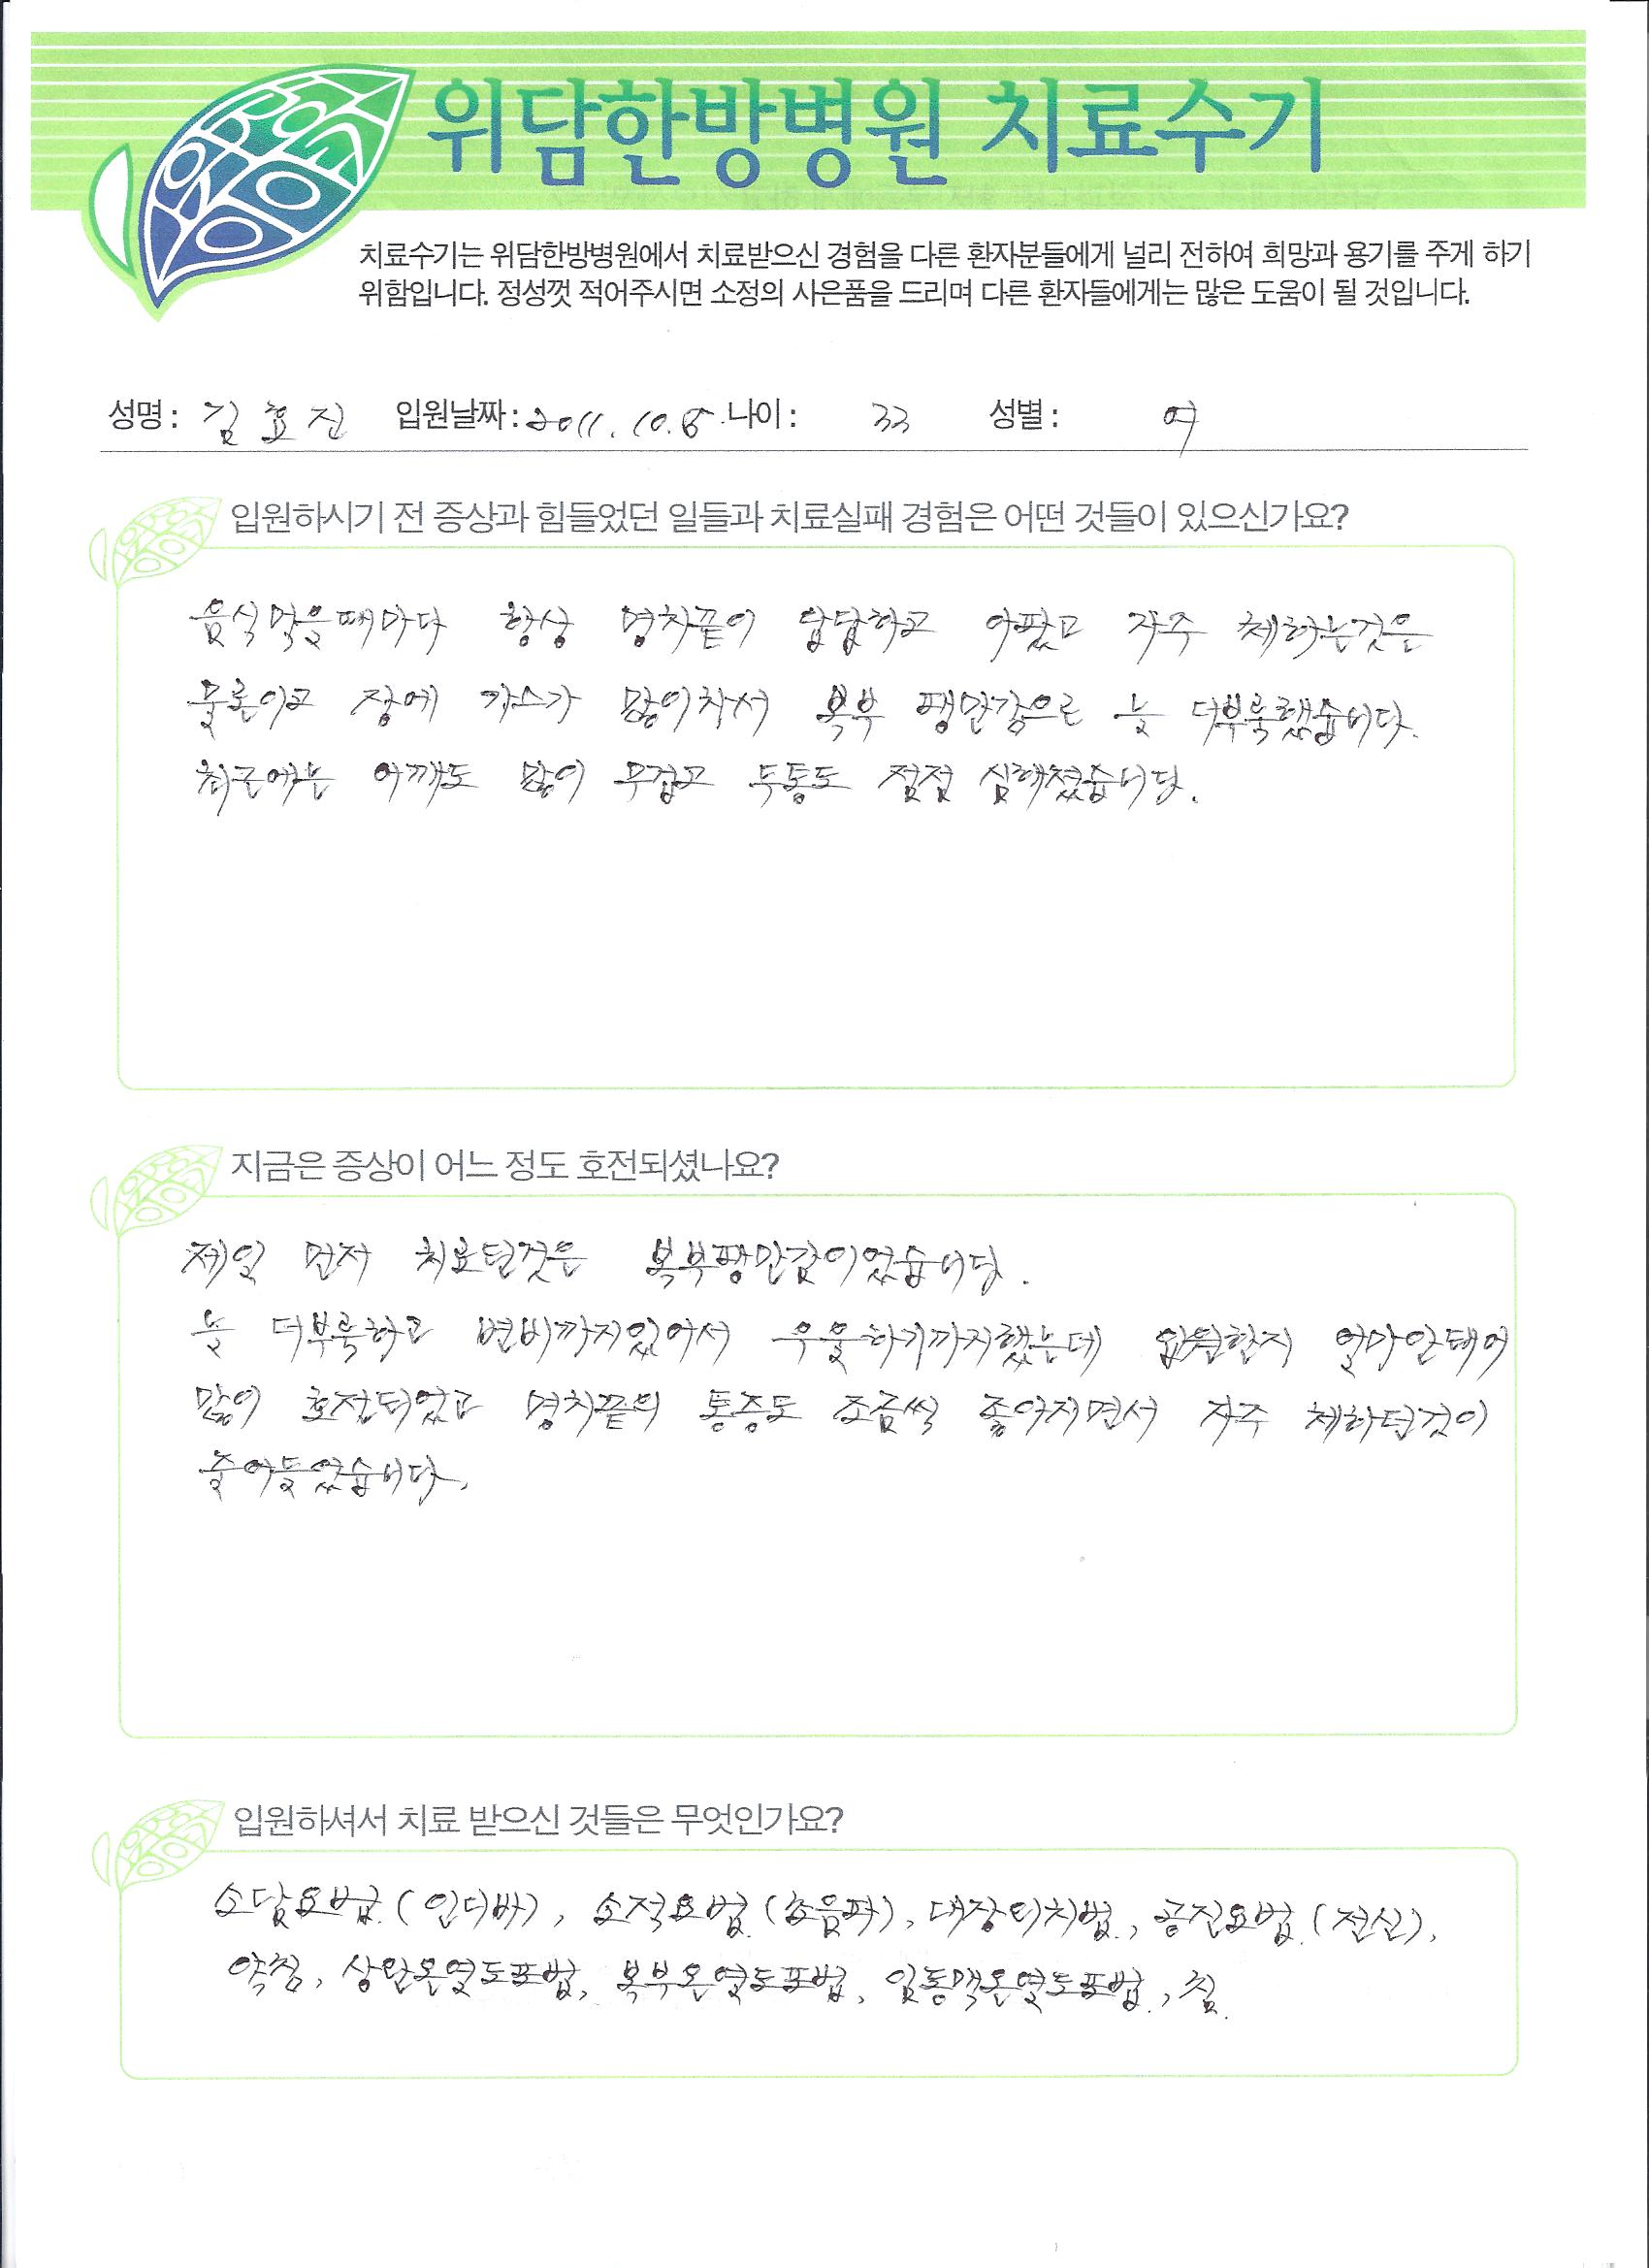 위담한방병원 치료수기
치료수기는 위담한방병원에서 치료받으신 경험을 다른 환자분들에게 널리 전하여 희망과 용기를 주게 하기
위함입니다. 정성껏 적어주시면 소정의 사은품을 드리며 다른 환자들에게는 많은 도움이 될 것입니다.
성명 : 김효진 입원날짜 : 2011. 10. 5. 나이 : 33 성별 : 여
입원하시기 전 증상과 힘들었던 일들과 치료실패 경험은 어떤 것들이 있으신가요?
음식먹을때마다 항상 명치끝이 답답하고 아팠고 자주 체하는것은
물론이고 장에 가스가 많이차서 복부 팽만감으로 늘 더부룩했습니다.
최근에는 어깨도 많이 무겁고 두통도 점점 심해졌습니당.
지금은 증상이 어느 정도 호전되셨나요?
제일 먼저 치료된것은 복부팽만감이었습니당.
늘 더부룩하고 변비까지있어서 우울하기까지했는데 입원한지 얼마안돼어
많이 호전되었고 명치끝의 통증도 조금씩 좋아지면서 자주 체하던것이
줄어들었습니다.
입원하셔서 치료 받으신 것들은 무엇인가요?
소담요법 (인디바), 소적요법 (초음파), 대장터치법, 공진요법 (전신),
약침, 상완온열도포법, 복부온열도포법, 임동맥온열도포법, 침.